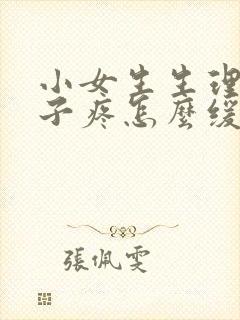 小女生生理
子疼怎麼緩
張佩雯